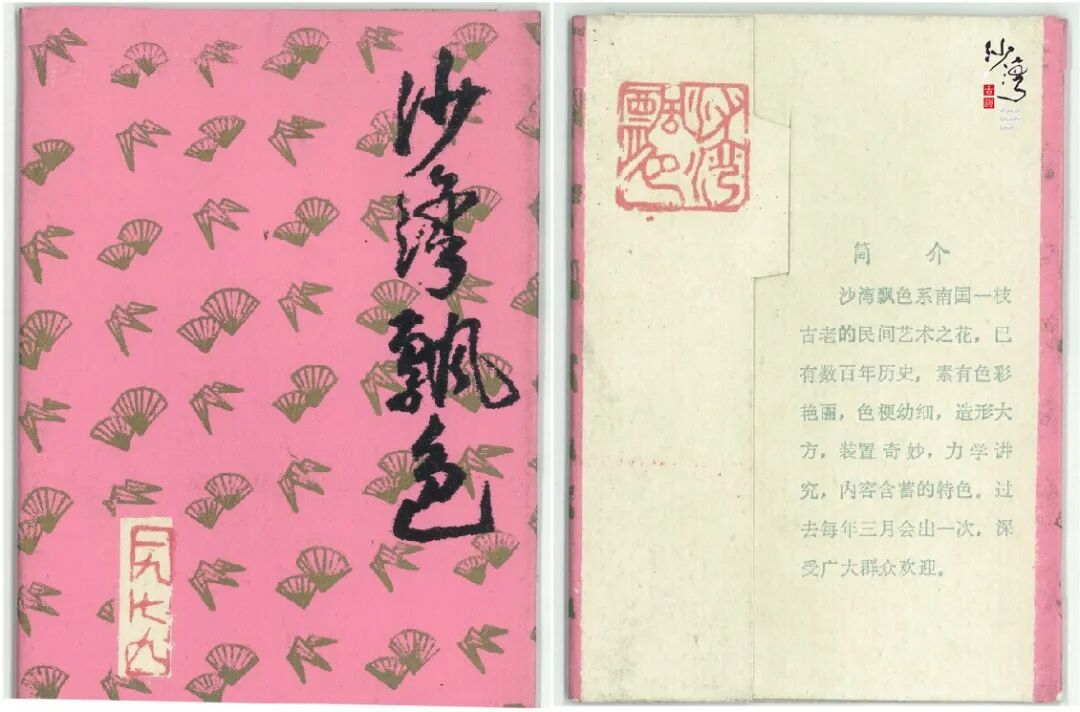 沙灣飘色
一九七九
沙湾
飘色
沙灣
古镇
简介
沙湾飘色系南国一枝
古老的民间艺术之花，已
有数百年历史，素有色彩
艳丽，色梗幼细，造形大
方，装置奇妙，力学讲
究，内容含蓄的特色。过
去每年三月会出一次，深
受广大群众欢迎。